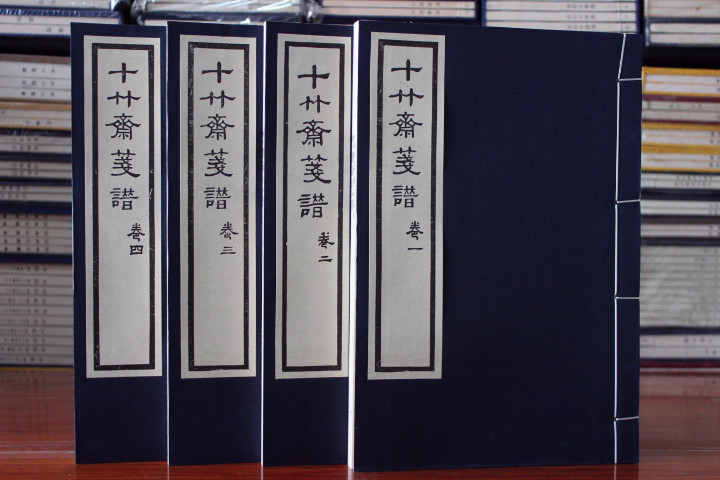 十竹齋箋譜
卷一
十竹齋箋譜
卷二
十竹齋箋譜
卷三
十竹齋箋譜
卷四